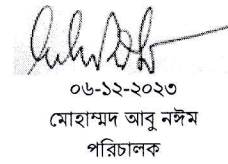 ০৬-১২-২০২৩
মোহাম্মদ আবু নঈম
পরিচালক